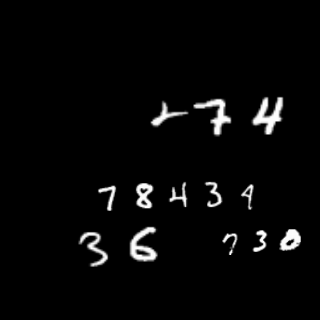 74
78434
36 730